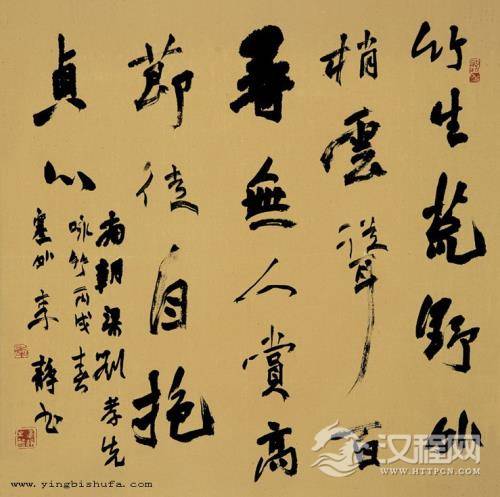 竹生荒野外
梢雲聳百
尋無人賞高
節徒自抱
貞心
南朝梁劉孝先
咏竹丙戌春
塞外宋靜书
www.yingbishufa.com
汉程网
HTTPCN.COM